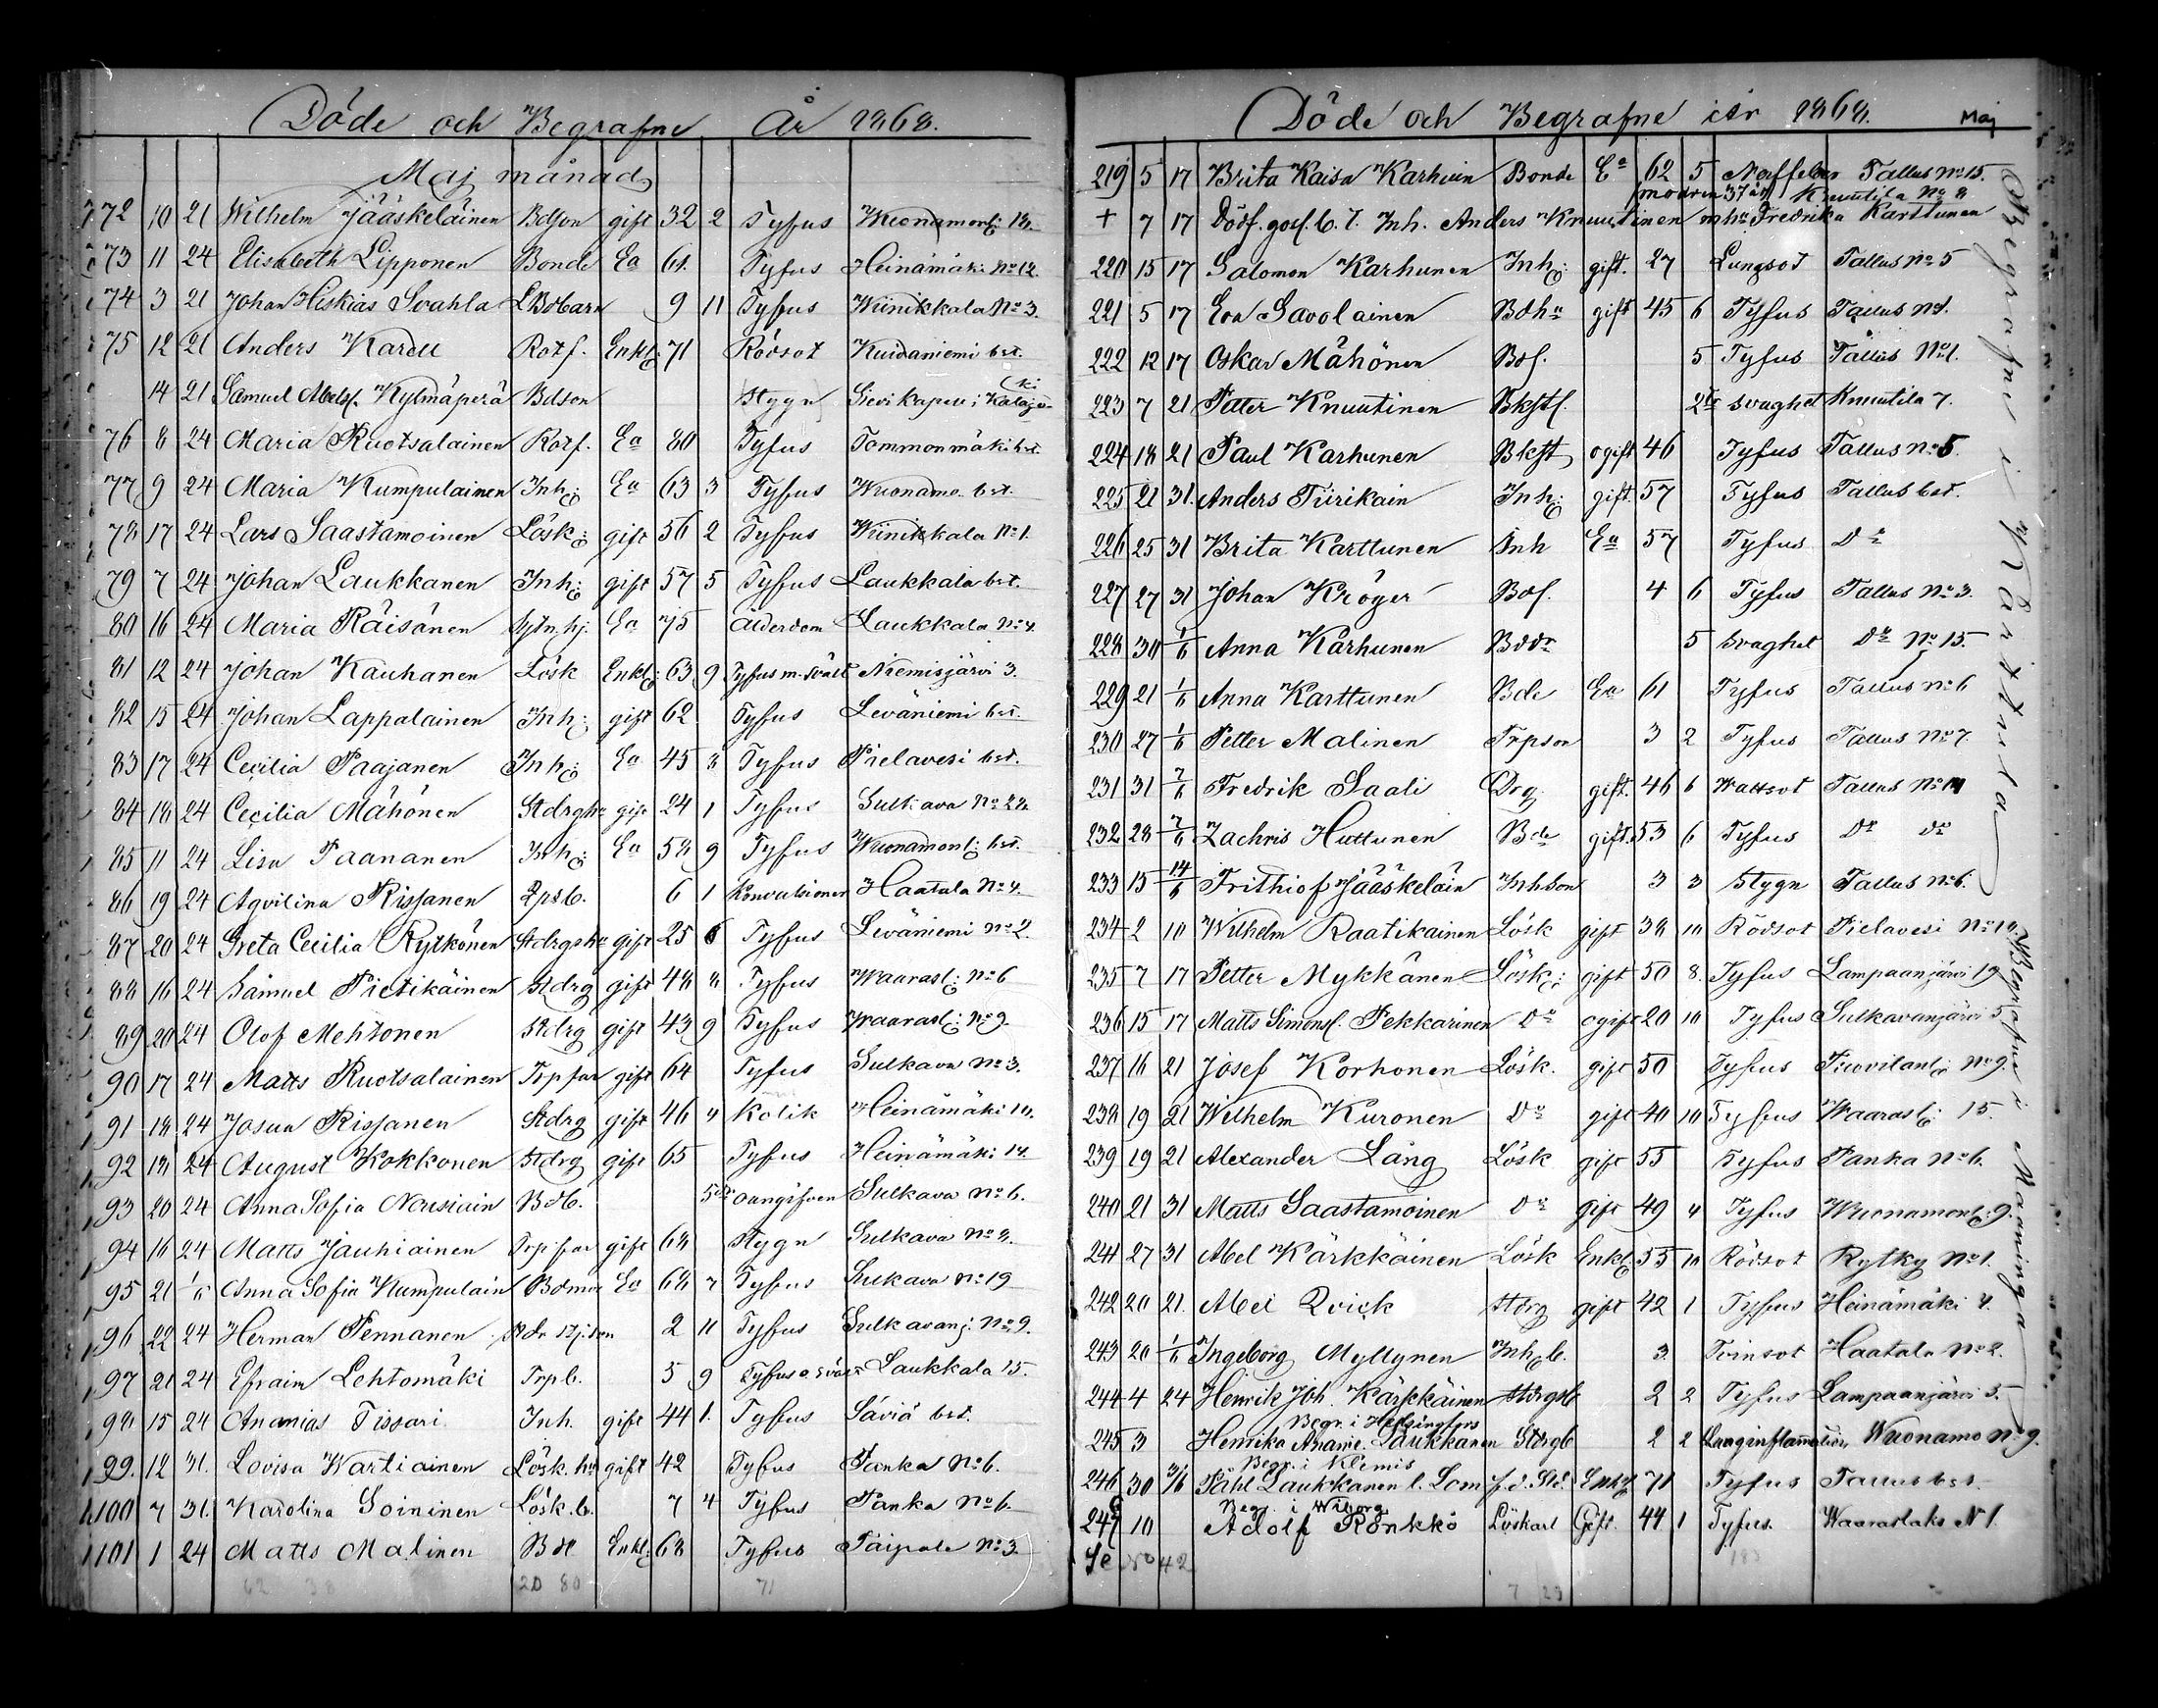 Döde och Begrafne År 1868.
Maj månad
72 10 21 Wilhelm Jääskeläinen Bdson gift 32 2 Tyfus Wuonamonl: 18.
73 11 24 Elisabeth Lipponen Bonde Ea 61. Tyfus Heinämäki No 12.
74 3 21 Johan Hiskias Svahla LBdbarn 9 11 Tyfus Wiinikkala No 3.
75 12 21 Anders Kardu Rotf. Enkl: 71 Rödsot Kuidaniemi bst.
14 21 Samuel Abelsf. Kylmäperä Bdson Stygn Sievi Kapell i Kalajoki
76 8 24 Maria Ruotsalainen Rotf. Ea 80 Tyfus Tommonmäki bst.
77 9 24 Maria Kumpulainen Inh: Ea 63 3 Tyfus Wuonamo bst.
78 17 24 Lars Saastamoinen Lösk: gift 56 2 Tyfus Wiinikkala No 1.
79 7 24 Johan Laukkanen Inh: gift 57 5 Tyfus Laukkala bst.
80 16 24 Maria Räisänen Sytn.hj: Ea 75 ålderdom Laukkala No 4.
81 12 24 Johan Kauhanen Lösk Enkl: 63 9 Tyfus m. svält Niemisjärvi 3.
82 15 24 Johan Lappalainen Inh: gift 62 Tyfus Leväniemi bst.
83 17 24 Cecilia Paajanen Inh: Ea 45 8 Tyfus Pielavesi bst.
84 18 24 Cecilia Mähönen Stdrghu gift 24 1 Tyfus Sulkava No 28.
85 11 24 Lisa Paananen Inh: Ea 58 9 Tyfus Wuonamonl: bst.
86 19 24 Aqvilina Rissanen Rpsb. 6 1 Konvulsioner Haatala No 4.
87 20 24 Greta Cecilia Rytkönen Stdrgshu gift 25 6 Tyfus Leväniemi No 2.
88 16 24 Samuel Pietikäinen Stdrg gift 48 8 Tyfus Waarasl: No 6
89 20 24 Olof Mehtonen Stdrg gift 43 9 Tyfus Waarasl: No 9.
90 17 24 Matts Ruotsalainen Trpfar gift 64 Tyfus Sulkava No 3.
91 18 24 Josua Rissanen Stdrg gift 46 4 Kolik Heinämäki 10.
92 18 24 August Kokkonen Stdrg gift 65 Tyfus Heinämäki 14.
93 20 24 Anna Sofia Nousiain Bdb. 5dr oangifven Sulkava No 6.
94 16 24 Matts Jauhiainen Trpfar gift 68 Stygn Sulkava No 8.
95 21 1/6 Anna Sofia Kumpulain Bdmor Ea 68 7 Tyfus Sulkava No 19
96 22 24 Herman Pennanen 2 11 Tyfus Sulkavanj. No 9.
97 21 24 Efraim Lehtomäki Trpb. 5 9 Tyfus o. svält Laukkala 15.
98 15 24 Ananias Tissari Inh. gift 44 1. Tyfus Säviä bst.
99. 12 31. Lovisa Wartiainen Lösk. hu gift 42 Tyfus Panka No 6.
1100 7 31. Karolina Soininen Lösk. b. 7 4 Tyfus Panka No 6.
1101 1 24 Matts Malinen Bde Enkl: 68 Tyfus Taipale No 3.
62 38 20 80 71
Döde och Begrafne År 1868. Maj
219 5 17 Brita Kaisa Karhuin Bonde Ea 62 5 Nerffeber Tallus No 15.
modren 37 år Knuutila No 8
+ 7 17 Dödf. gosf. b. t. Inh. Anders Knuutinen m hu Fredrika Karttunen
220 15 17 Salomon Karhunen Inh: gift. 27 Lungsot Tallus No 5
221 5 17 Eva Savolainen Bdhu gift 45 6 Tyfus Tallus No 1.
222 12 17 Oskar Mähönen Bdf. 5 Tyfus Tallus No 1.
223 7 21 Petter Knuutinen Bkstf. svaghet Knuutila 7.
224 18 21 Paul Karhunen Bkst ogift 46 Tyfus Tallus No 5.
225 21 31. Anders Tiirikain Inh: gift. 57 Tyfus Tallus bst.
226 25 31 Brita Karttunen Inh Ea 57 Tyfus Do
227 27 31 Johan Kröger Bdf. 4 6 Tyfus Tallus No 3.
228 30 1/6 Anna Karhunen Bddr 5 svaghet Do No 15.
229 21 1/6 Anna Karttunen Bde Ea 61 Tyfus Tallus No 6
230 27 1/6 Petter Malinen Trpson 3 2 Tyfus Tallus No 7.
231 31 7/6 Fredrik Saali Drg gift. 46 6 Wattsot Tallus No
232 28 7/6 Zachris Huttunen Bde gift. 53 6 Tyfus Do do
233 15 14/6 Frithiof Jääskeläin Inhson 3 3 Stygn Tallus No 6.
Begrafne i Kärtula
234 2 10 Wilhelm Raatikainen Lösk gift 38 10 Rödsot Pielavesi No 18.
235 7 17 Petter Mykkänen Lösk: gift 50 8. Tyfus Lampaanjärvi 19
236 15 17 Matts Simonsf. Pekkarinen Do ogift 20 10 Tyfus Sulkavanjärvi 5
237 16 21 Josef Korhonen Lösk. gift 50 Tyfus No 9.
238 19 21 Wilhelm Kuronen Do gift 40 10 Tyfus Waarasl: 15.
239 19 21 Alexander Lång Lösk gift 55 Tyfus Panka No 6.
240 21 31 Matts Saastamoinen Do gift 49 4 Tyfus Wuonamonl: 9.
241 27 31 Abel Kärkkäinen Lösk Enkl: 55 10 Rödsot Rytky No 1.
242 20 21. Abel Qvick Stdrg gift 42 1 Tyfus Heinämäki 4.
243 20 1/6 Ingeborg Myllynen Inh. b. 3 Tvinsot Haatala No 2.
244 4 24 Henrik Joh. Kärkkäinen Stdrgsb 2 2 Tyfus Lampaanjärvi 5.
Begrafne i Maaninga
Begr. i Helsingfors
245 3 Henrika Ananie. Laukkanen Stdrgb 2 2 Lunginflammation Wuonamo No 9.
Begr. i Klemis
246 30 3/6 Påhl Laukkanen l. Lom f.d. Sld. Enkl 71 Tyfus Tallus bst.
Begr. i Wiborg
247 10 Adolf Rönkkö Löskarl Gift. 44 1 Tyfus. Waaraslaks N 1.
Se No 42
7 23 183